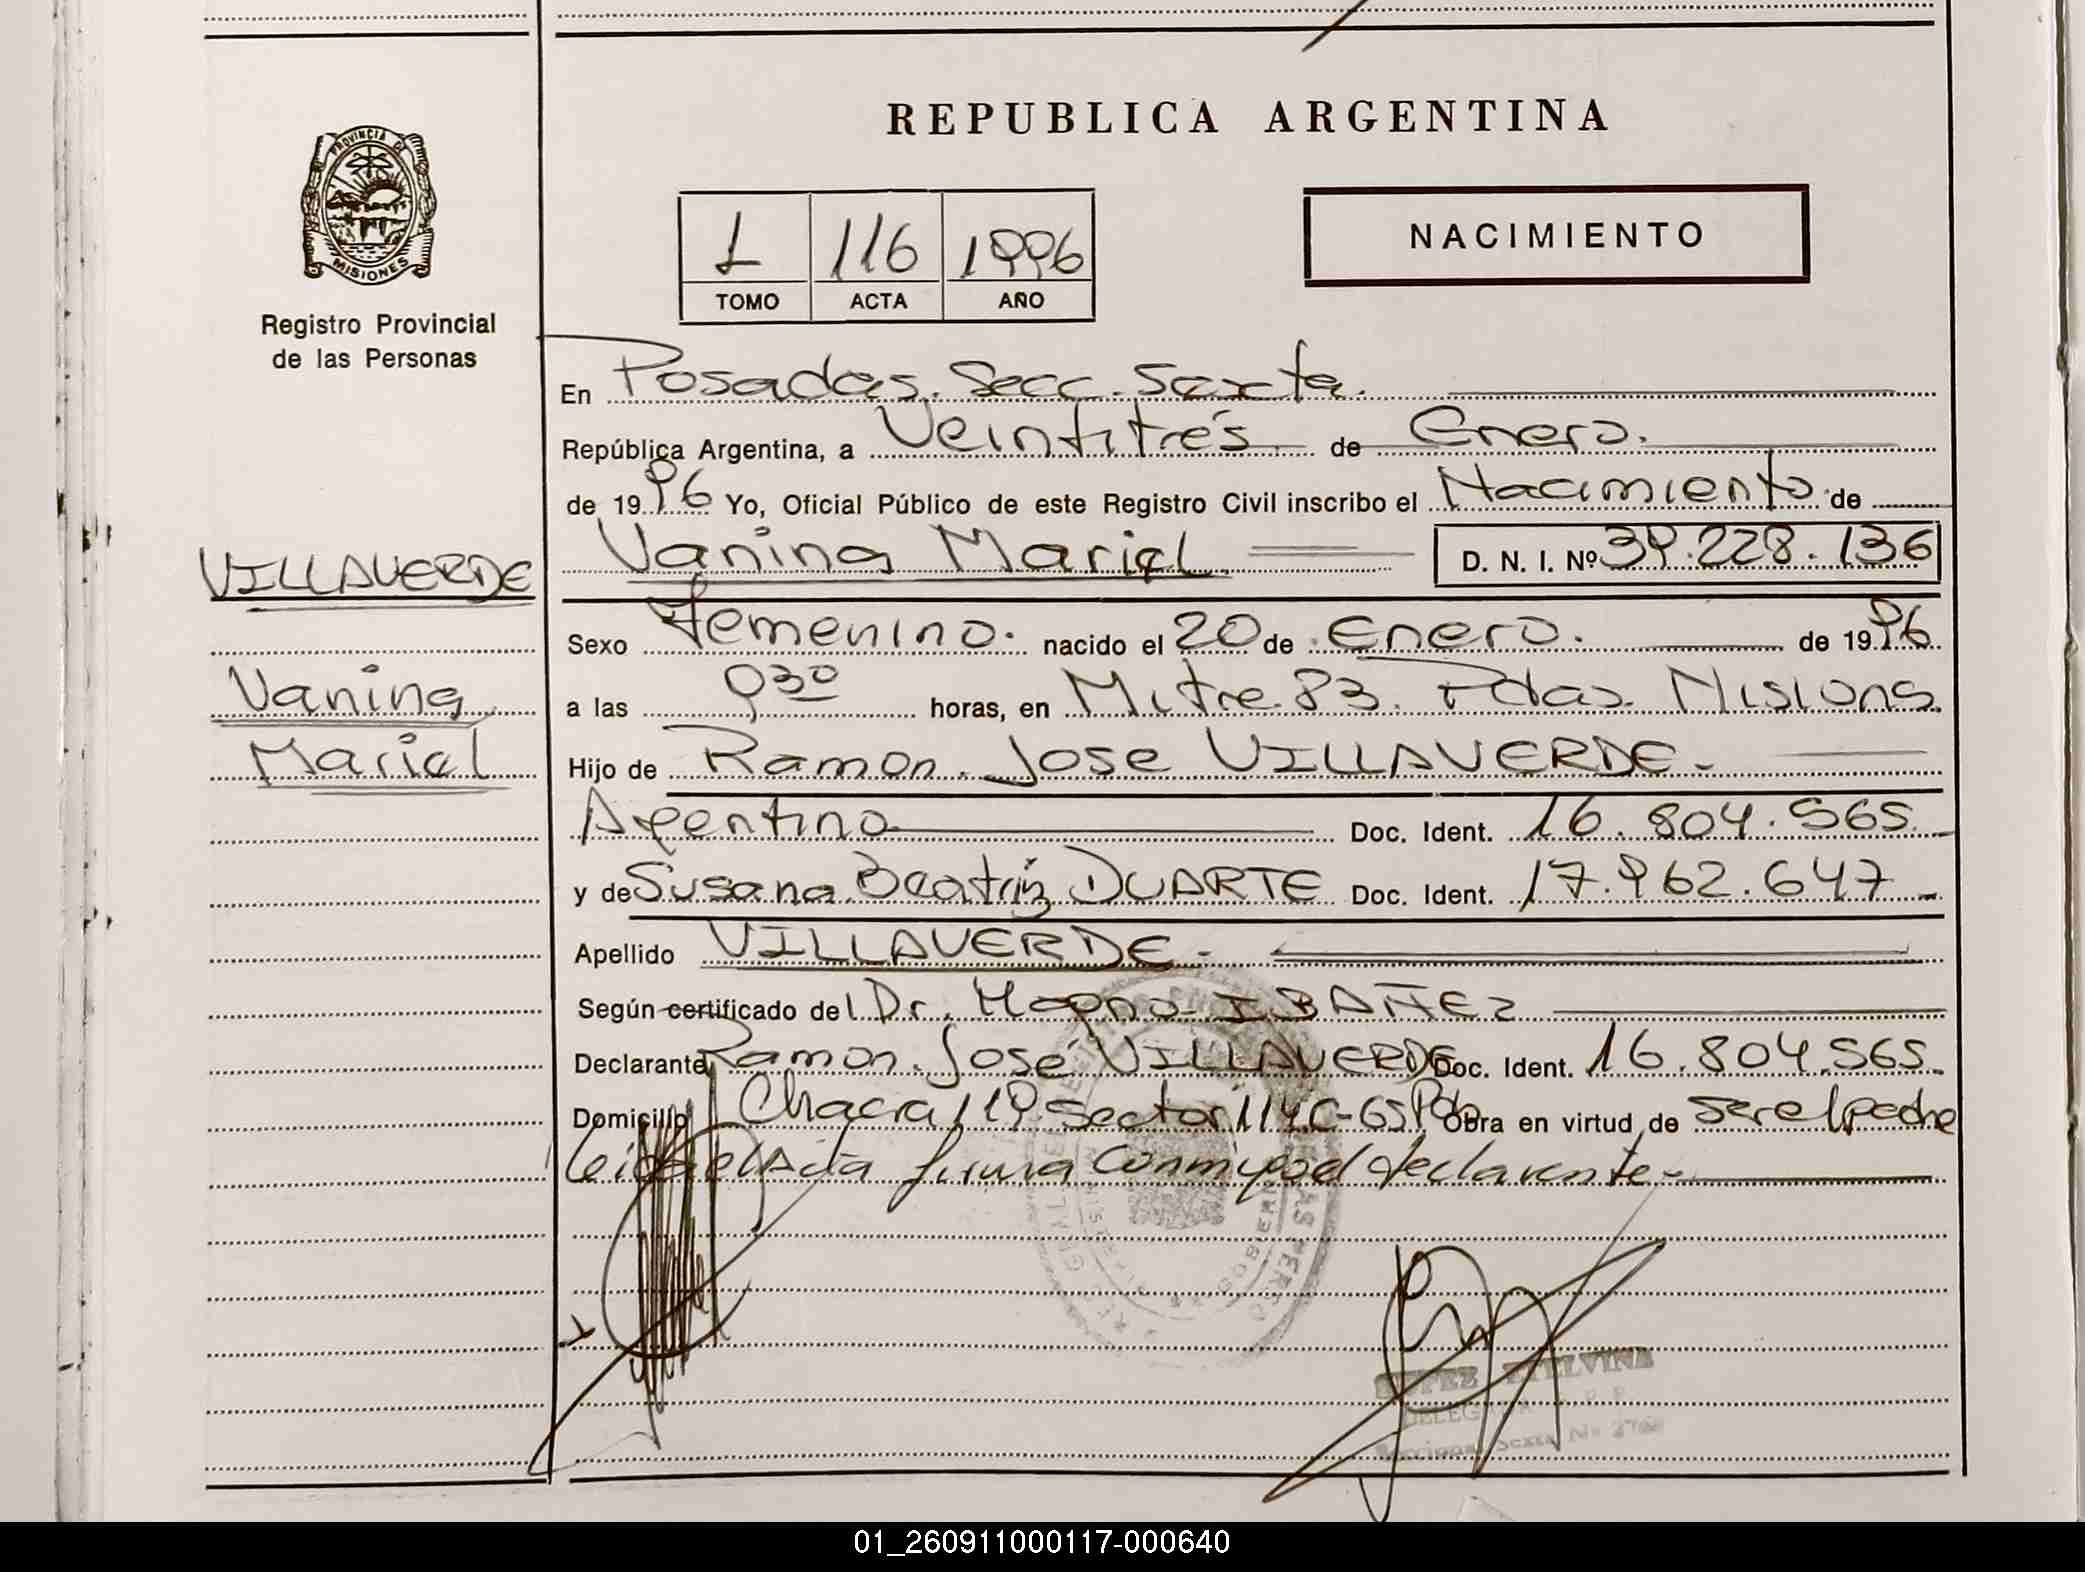 REPUBLICA ARGENTINA
PROVINCIA DE
MISIONES
Registro Provincial
de las Personas
1 116 1996
TOMO ACTA AÑO
NACIMIENTO
En Posadas. Secc. Sexta.
República Argentina, a Veintitrés de Enero.
de 1996 Yo, Oficial Público de este Registro Civil inscribo el Nacimiento de
VILLAVERDE
Vanina
Mariel
Vanina Mariel D. N. I. Nº 39.228.136
Sexo Femenino. nacido el 20 de Enero. de 1996
a las 930 horas, en Mitre 83. Pdas. Misions
Hijo de Ramon Jose VILLAVERDE.
Argentino Doc. Ident. 16.804.565
y de Susana Beatriz DUARTE Doc. Ident. 17.962.647
Apellido VILLAVERDE.
Según certificado del Dr. Magno IBAÑEZ
Declarante Ramon José VILLAVERDE Doc. Ident. 16.804.565
Domicilio Chacra 119 Sector 114 Obra en virtud de ser el padre
Leida el Acta firma conmigo el declarante
DELEGADA
01_260911000117-000640